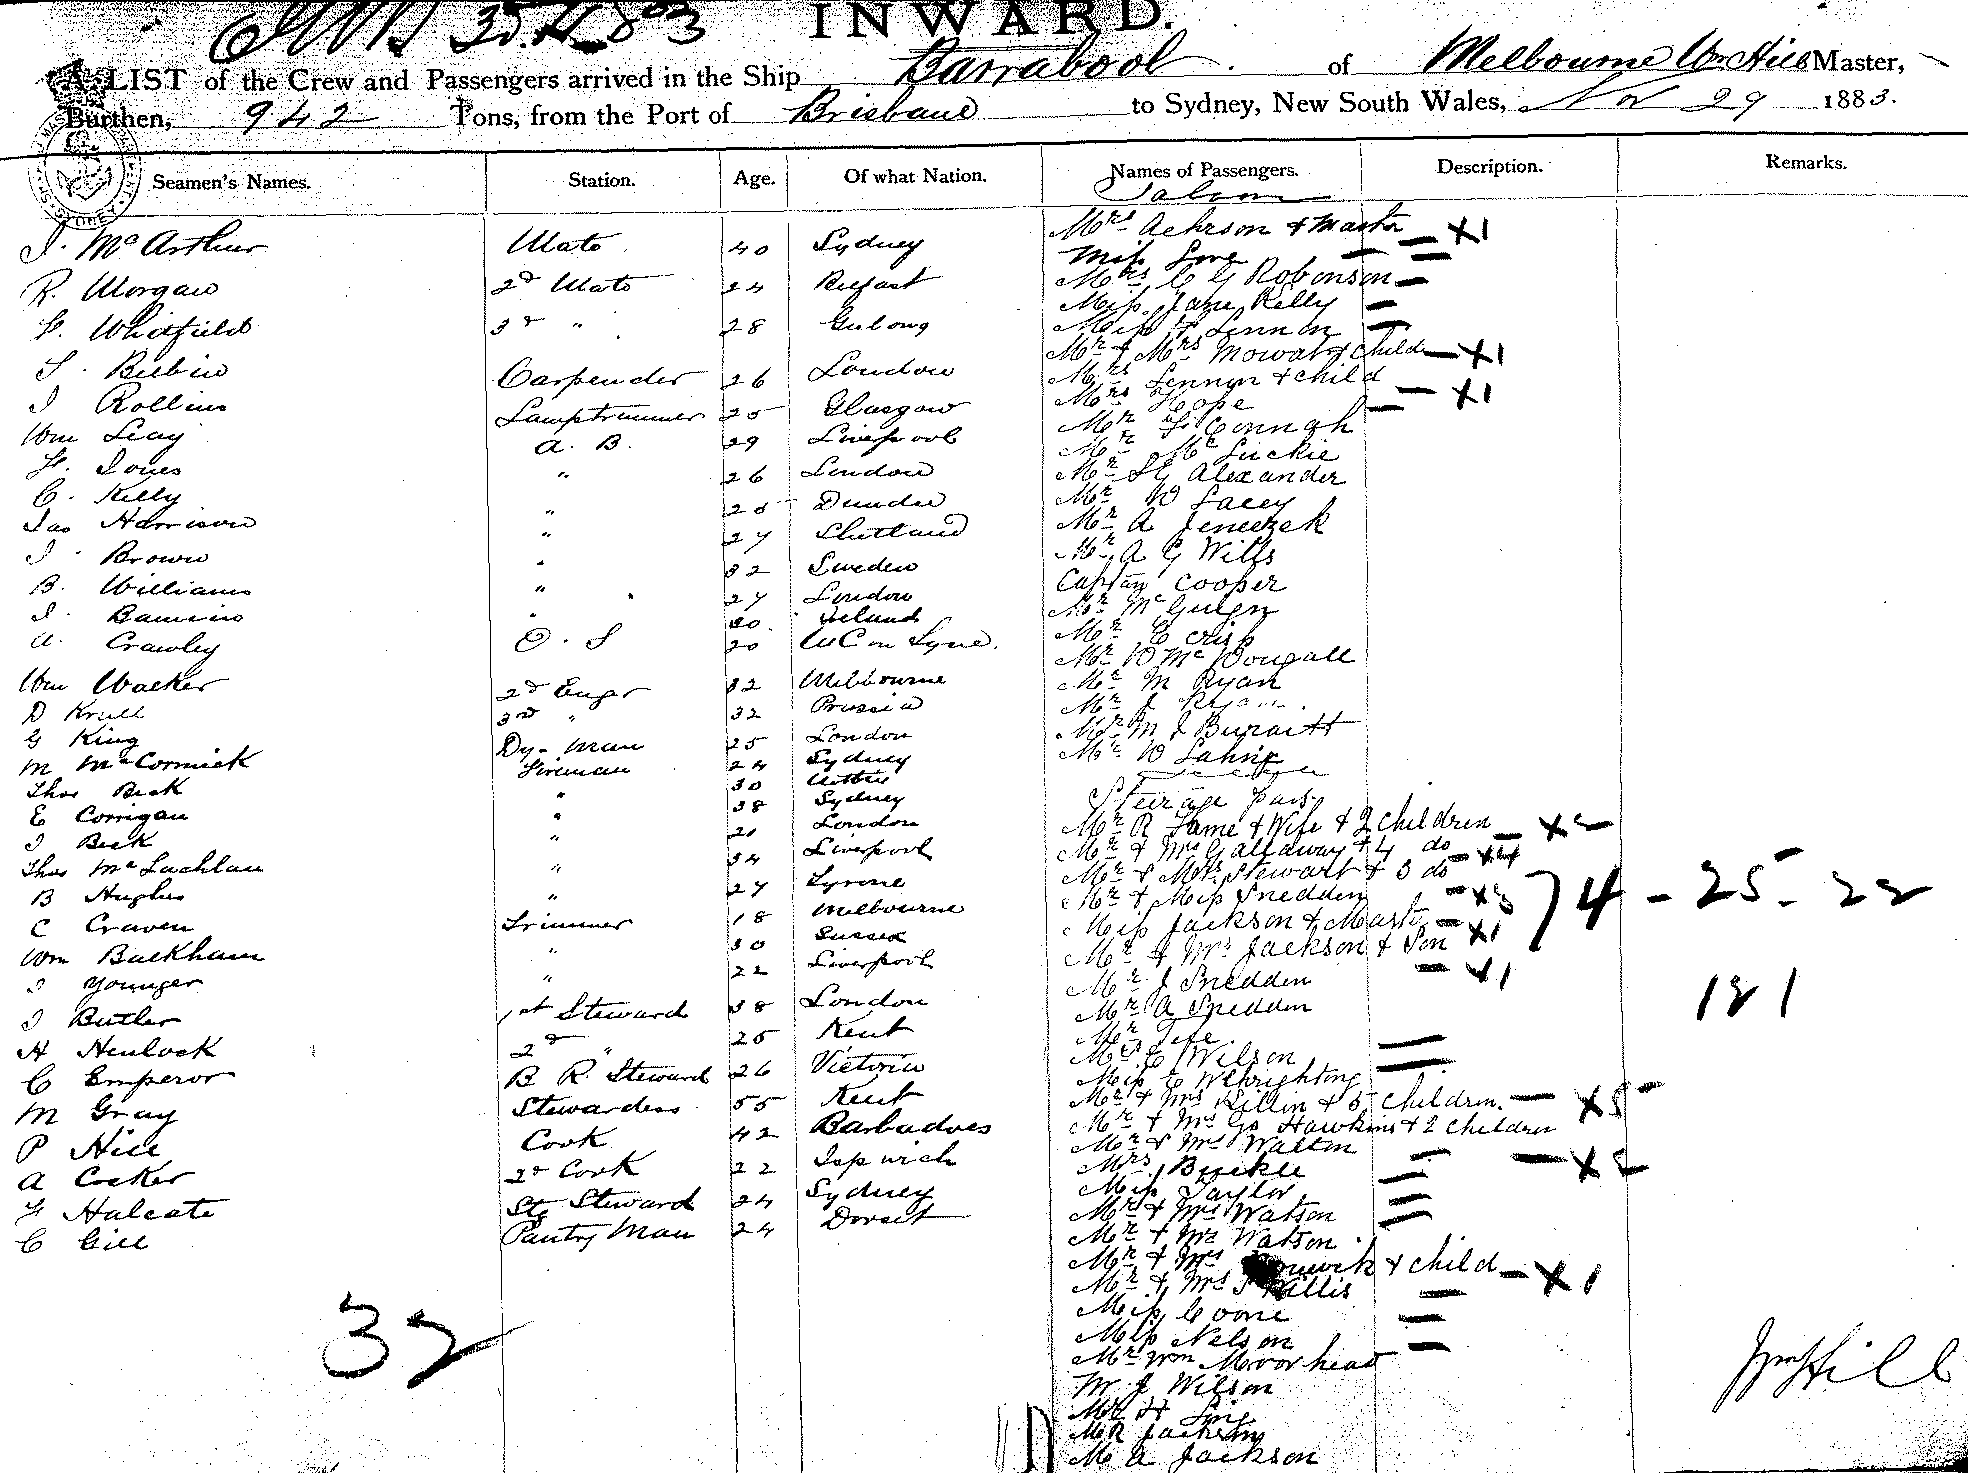 INWARD.
A LIST of the Crew and Passengers arrived in the Ship Barrabool of Melbourne Wm Hill Master,
Burthen, 942 Tons, from the Port of Brisbane to Sydney, New South Wales, Nov 29 1883.
Seamen's Names. Station. Age. Of what Nation. Names of Passengers. Description. Remarks.
Saloon
J. McArthur Mate 40 Sydney
R. Morgan 2d Mate 24 Belfast
H. Whitfield 3d " 28 Geelong
S. Bilbin Carpender 26 London
J Rollins Lamptrimmer 25 Glasgow
Wm Leay A. B. 29 Liverpool
H. Jones " 26 London
C. Kelly " 25 Dundee
Jas Harrison " 27 Shetland
J. Brown " 32 Sweden
B. Williams " 27 London
J. " 30 Ireland
A. Crawley O. S 20 on Tyne.
Wm Walker 2d Engr 32 Melbourne
D Krull 3rd " 32 Prussia
G King Dy-Man 25 London
M McCormick Fireman 24 Sydney
Thos Beck " 30
E Corrigan " 38 Sydney
J Beck " 21 London
Thos McLachlan " 34 Liverpool
B Hughes " 27 Tyrone
C Craven Trimmer 18 Melbourne
Wm Buckham " 30 Sussex
J Younger " 22 Liverpool
J Butler 1st Steward 38 London
H Henlock 2d " 25 Kent
C Emperor B R Steward 26 Victoria
M Gray Stewardess 55 Kent
P Hill Cook 42 Barbadoes
A Cocker 2d Cook 22 Ipswich
F Halcate Stg Steward 24 Sydney
C Gill Pantry Man 24 Dorset
32
Mrs Aehrson & Master — X1
Miss Love
Mrs C G Robenson —
Miss Jane Kelly —
Miss Lennon —
Mr & Mrs Mowat & child — X1
Mrs Lennon & child — X1
Mrs Hope —
Mr Connah
Mr McLuckie
Mr Alexander
Mr W Lacey
Mr A Jeneezek
Mr A G Wills
Captain Cooper
Mr McGuegn
Mr C Crisp
Mr D McDougall
Mr M Ryan
Mr J Ryan
Mr M J Buraitt
Mr W
Steerage pass
Mr R Lame & Wife & 2 children — X2
Mr & Mrs Galloway & 4 do — X4
Mr & Mrs Stewart & 3 do — X3
Mr & Miss Snedden
Miss Jackson & Master — X1
Mr & Mrs Jackson & Son — X1
Mr J Snedden
Mr A Snedden
Mr Tefe
Mrs C Wilson —
Miss E Wehrightong —
Mr & Mrs Killin & 5 children. — X5
Mr & Mrs Go Hawkins & 2 children — X2
Mr & Mrs Walton —
Mrs Buckle —
Miss Taylor —
Mr & Mrs Watson —
Mr & Mrs Watson
Mr & Mrs & child — X1
Mr & Mrs J Killis —
Miss Coone —
Miss Nelson —
Mr Wm Moorhead
Mr J Wilson
Mr H Sing
Mr R Jackson
Mr A Jackson
74 - 25 - 22
121
Wm Hill